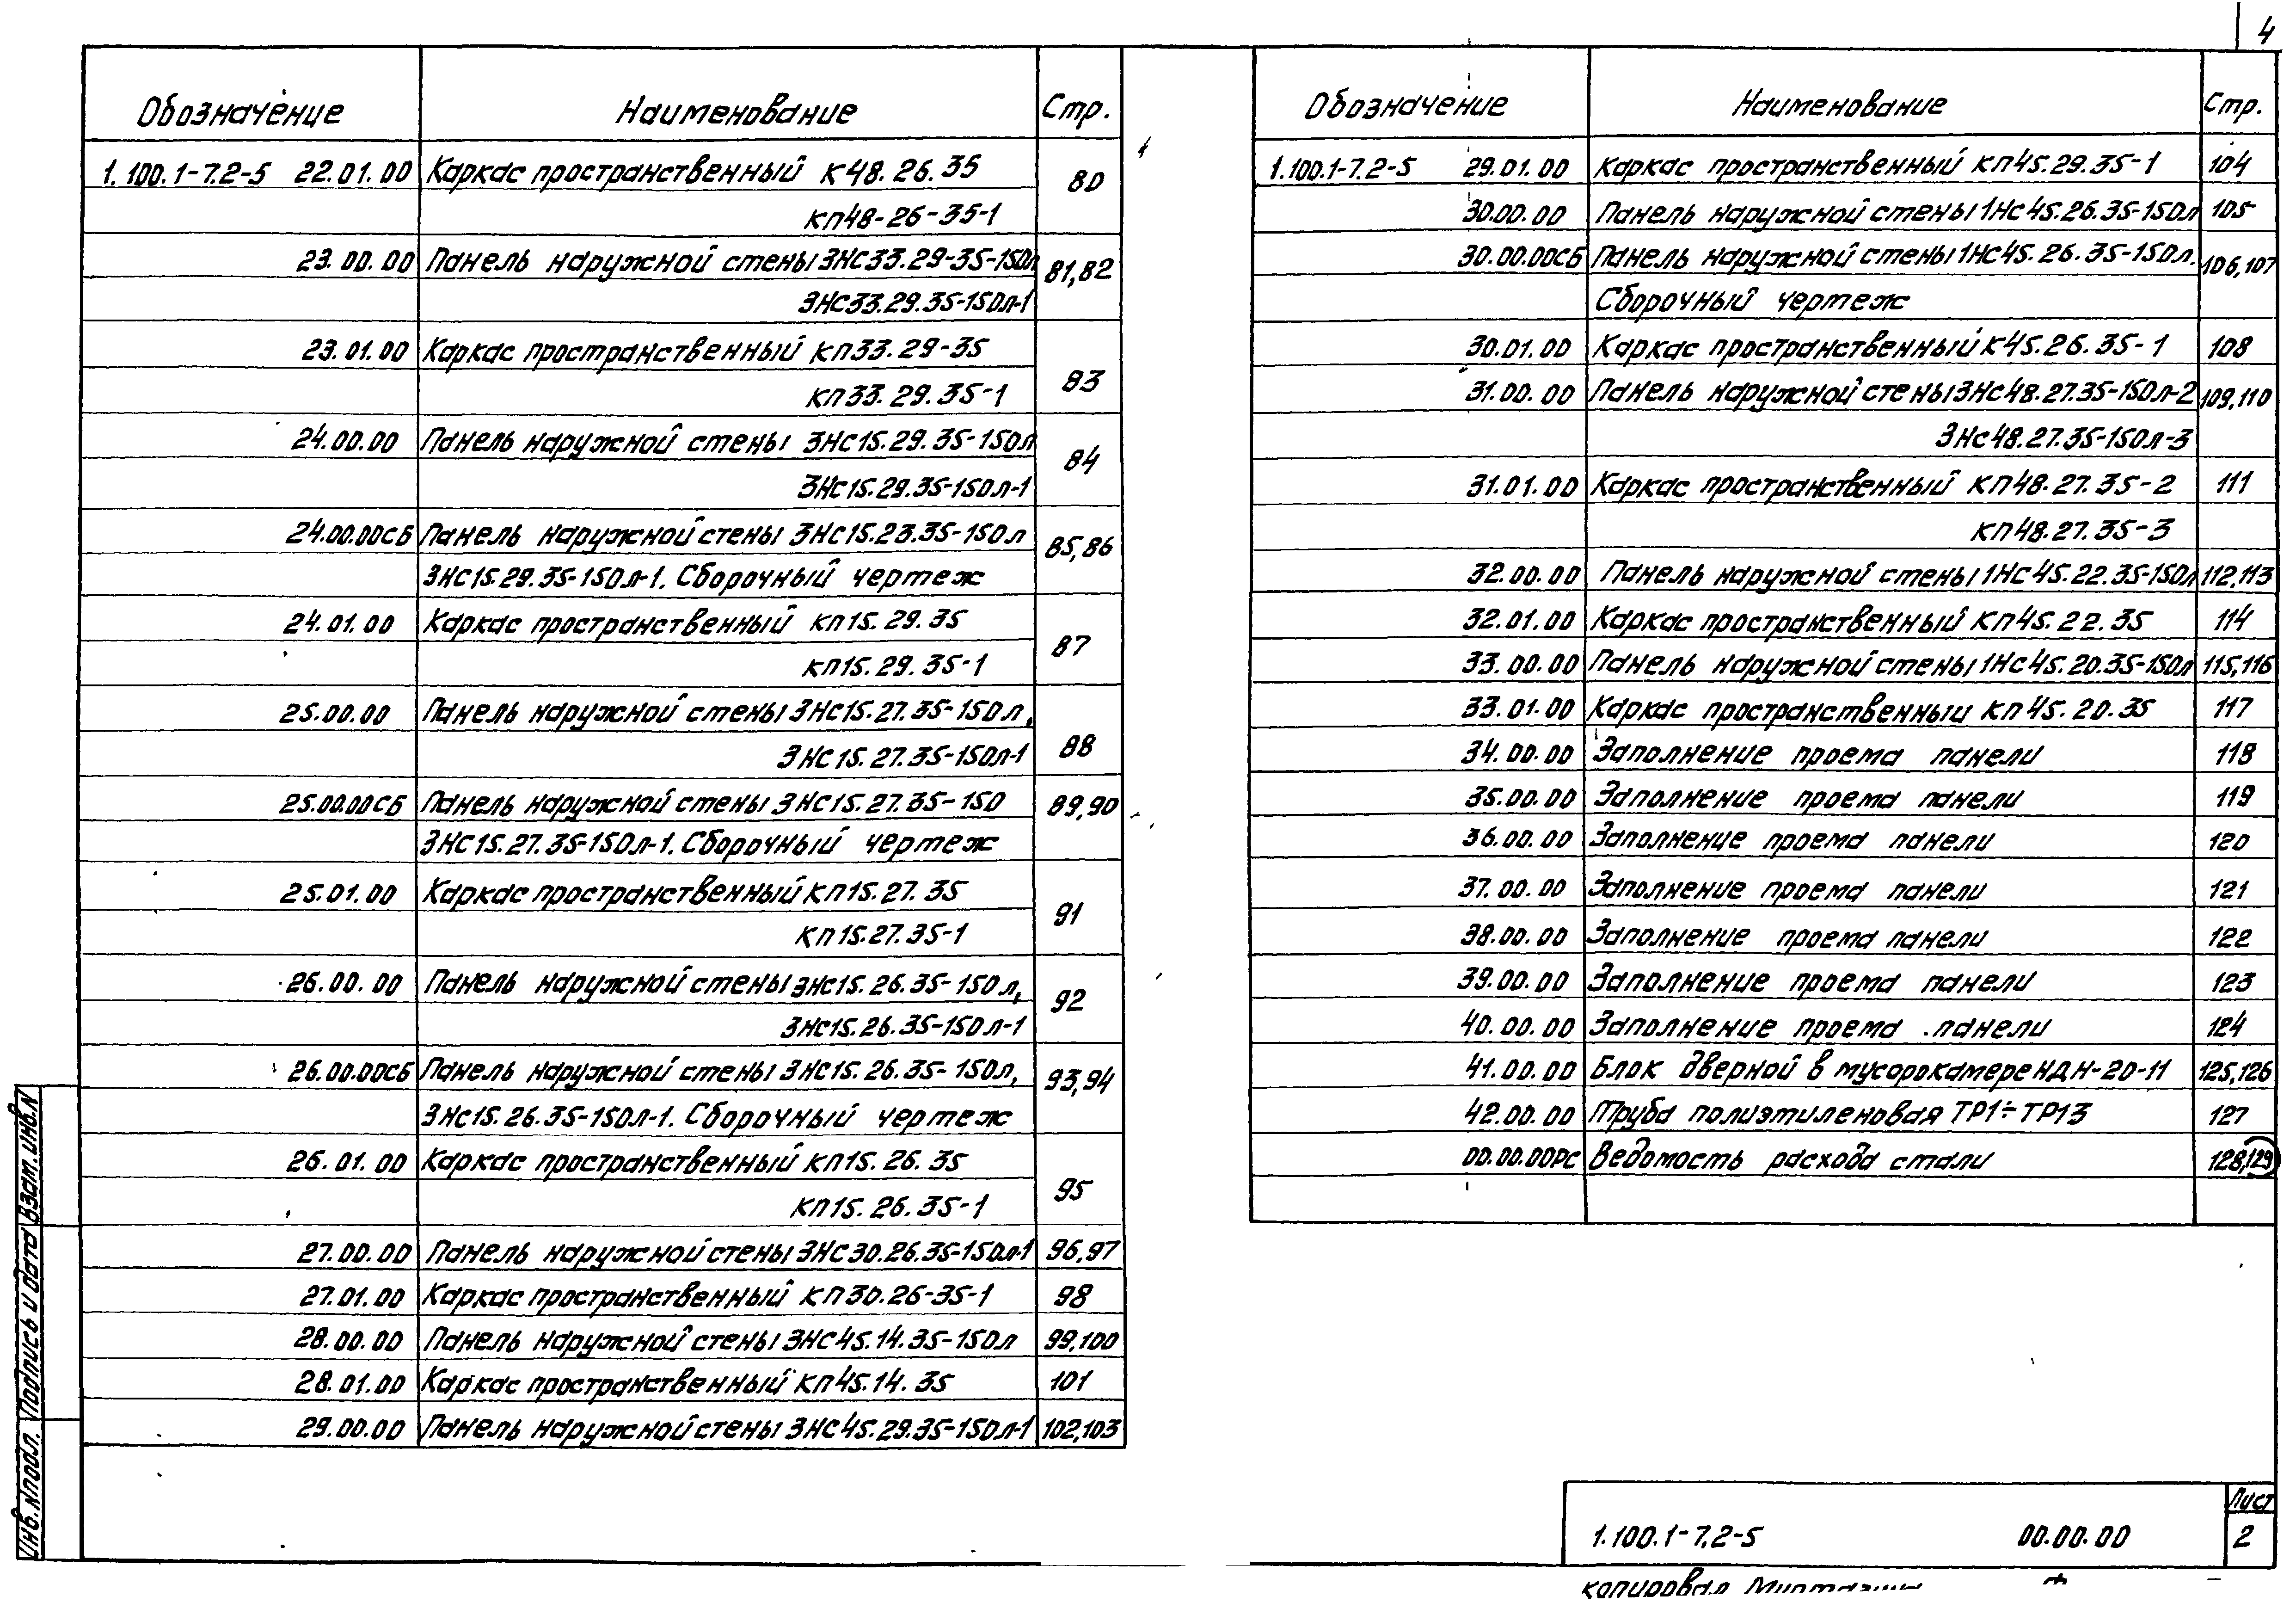 4
Обозначение Наименование Стр.
1.100.1-7.2-5 22.01.00 Каркас пространственный К48.26.35 80
КП48-26-35-1
23.00.00 Панель наружной стены 3НС33.29-35-150л 81,82
3НС33.29.35-150л-1
23.01.00 Каркас пространственный КП33.29-35 83
КП33.29.35-1
24.00.00 Панель наружной стены 3НС15.29.35-150л 84
3НС15.29.35-150л-1
24.00.00СБ Панель наружной стены 3НС15.23.35-150л 85,86
3НС15.29.35-150л-1. Сборочный чертеж
24.01.00 Каркас пространственный КП15.29.35 87
КП15.29.35-1
25.00.00 Панель наружной стены 3НС15.27.35-150л, 88
3НС15.27.35-150л-1
25.00.00СБ Панель наружной стены 3НС15.27.35-150 89,90
3НС15.27.35-150л-1. Сборочный чертеж
25.01.00 Каркас пространственный КП15.27.35 91
КП15.27.35-1
26.00.00 Панель наружной стены 3НС15.26.35-150л, 92
3НС15.26.35-150л-1
26.00.00СБ Панель наружной стены 3НС15.26.35-150л, 93,94
3НС15.26.35-150л-1. Сборочный чертеж
26.01.00 Каркас пространственный КП15.26.35 95
КП15.26.35-1
27.00.00 Панель наружной стены 3НС30.26.35-150л-1 96,97
27.01.00 Каркас пространственный КП30.26-35-1 98
28.00.00 Панель наружной стены 3НС45.14.35-150л 99,100
28.01.00 Каркас пространственный КП45.14.35 101
29.00.00 Панель наружной стены 3НС45.29.35-150л-1 102,103
Обозначение Наименование Стр.
1.100.1-7.2-5 29.01.00 Каркас пространственный КП45.29.35-1 104
30.00.00 Панель наружной стены 1НС45.26.35-150л 105
30.00.00СБ Панель наружной стены 1НС45.26.35-150л. 106,107
Сборочный чертеж
30.01.00 Каркас пространственный К45.26.35-1 108
31.00.00 Панель наружной стены 3НС48.27.35-150л-2 109,110
3НС48.27.35-150л-3
31.01.00 Каркас пространственный КП48.27.35-2 111
КП48.27.35-3
32.00.00 Панель наружной стены 1НС45.22.35-150л 112,113
32.01.00 Каркас пространственный КП45.22.35 114
33.00.00 Панель наружной стены 1НС45.20.35-150л 115,116
33.01.00 Каркас пространственный КП45.20.35 117
34.00.00 Заполнение проема панели 118
35.00.00 Заполнение проема панели 119
36.00.00 Заполнение проема панели 120
37.00.00 Заполнение проема панели 121
38.00.00 Заполнение проема панели 122
39.00.00 Заполнение проема панели 123
40.00.00 Заполнение проема панели 124
41.00.00 Блок дверной в мусорокамере НДН-20-11 125,126
42.00.00 Труба полиэтиленовая ТР1÷ТР13 127
00.00.00РС Ведомость расхода стали 128,129
Инв.Nподл. Подпись и дата Взам.инв.N
1.100.1-7.2-5 00.00.00 Лист
2
копировал